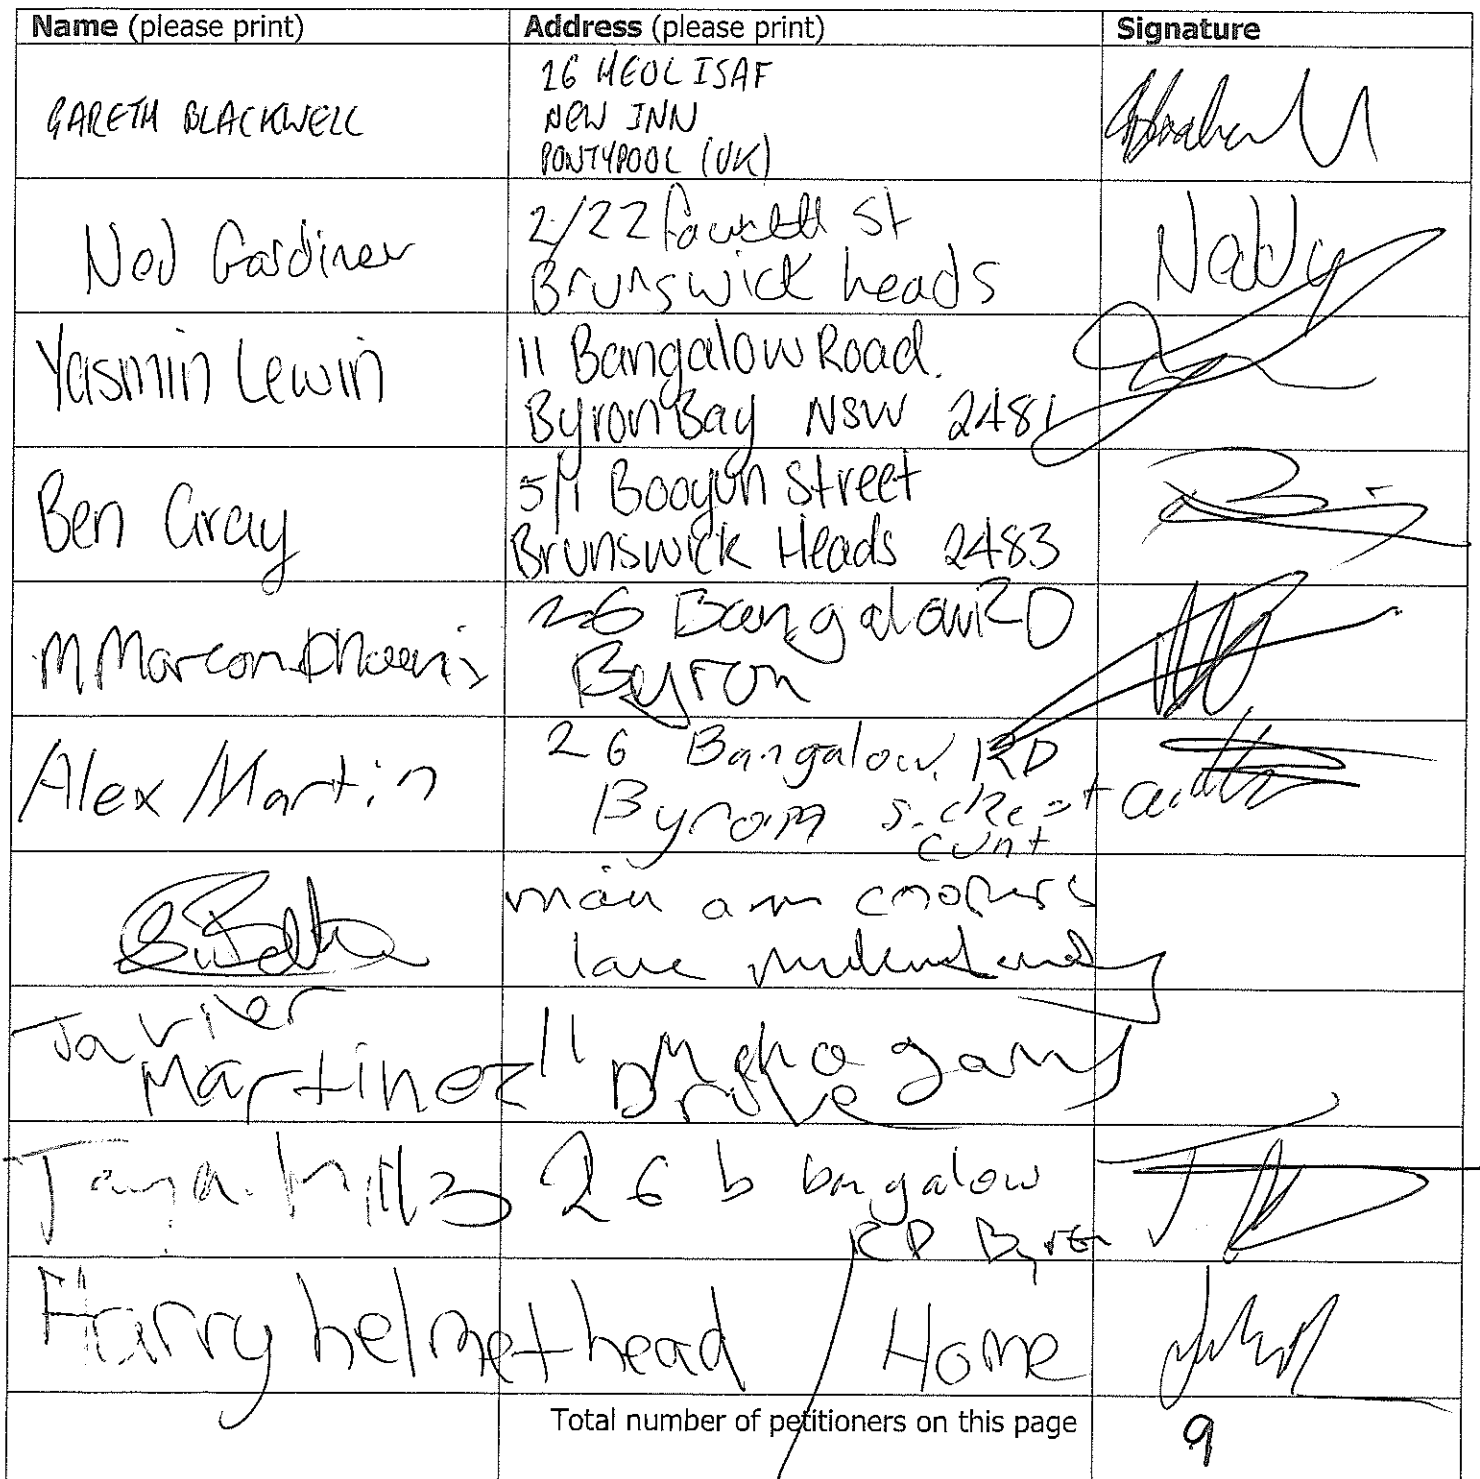 Name (please print) Address (please print) Signature
GARETH BLACKWELL
16 HEOL ISAF
NEW INN
PONTYPOOL (UK)
Ned Gardiner
2/22 fawcett St
Brunswick heads
Neddy
Yasmin Lewin
11 Bangalow Road.
Byron Bay NSW 2481
Ben Gray
5/1 Booyun Street
Brunswick Heads 2483
M Marcon
26 Bangalow RD
Byron
Alex Martin
26 Bangalow RD
Byrom
cunt
main arm coopers
lane
Javier
Martinez
11 Mahogany
Drive
Tanya Mills
26 b bangalow
RD Byron
Harry helmethead
Home
Total number of petitioners on this page
9